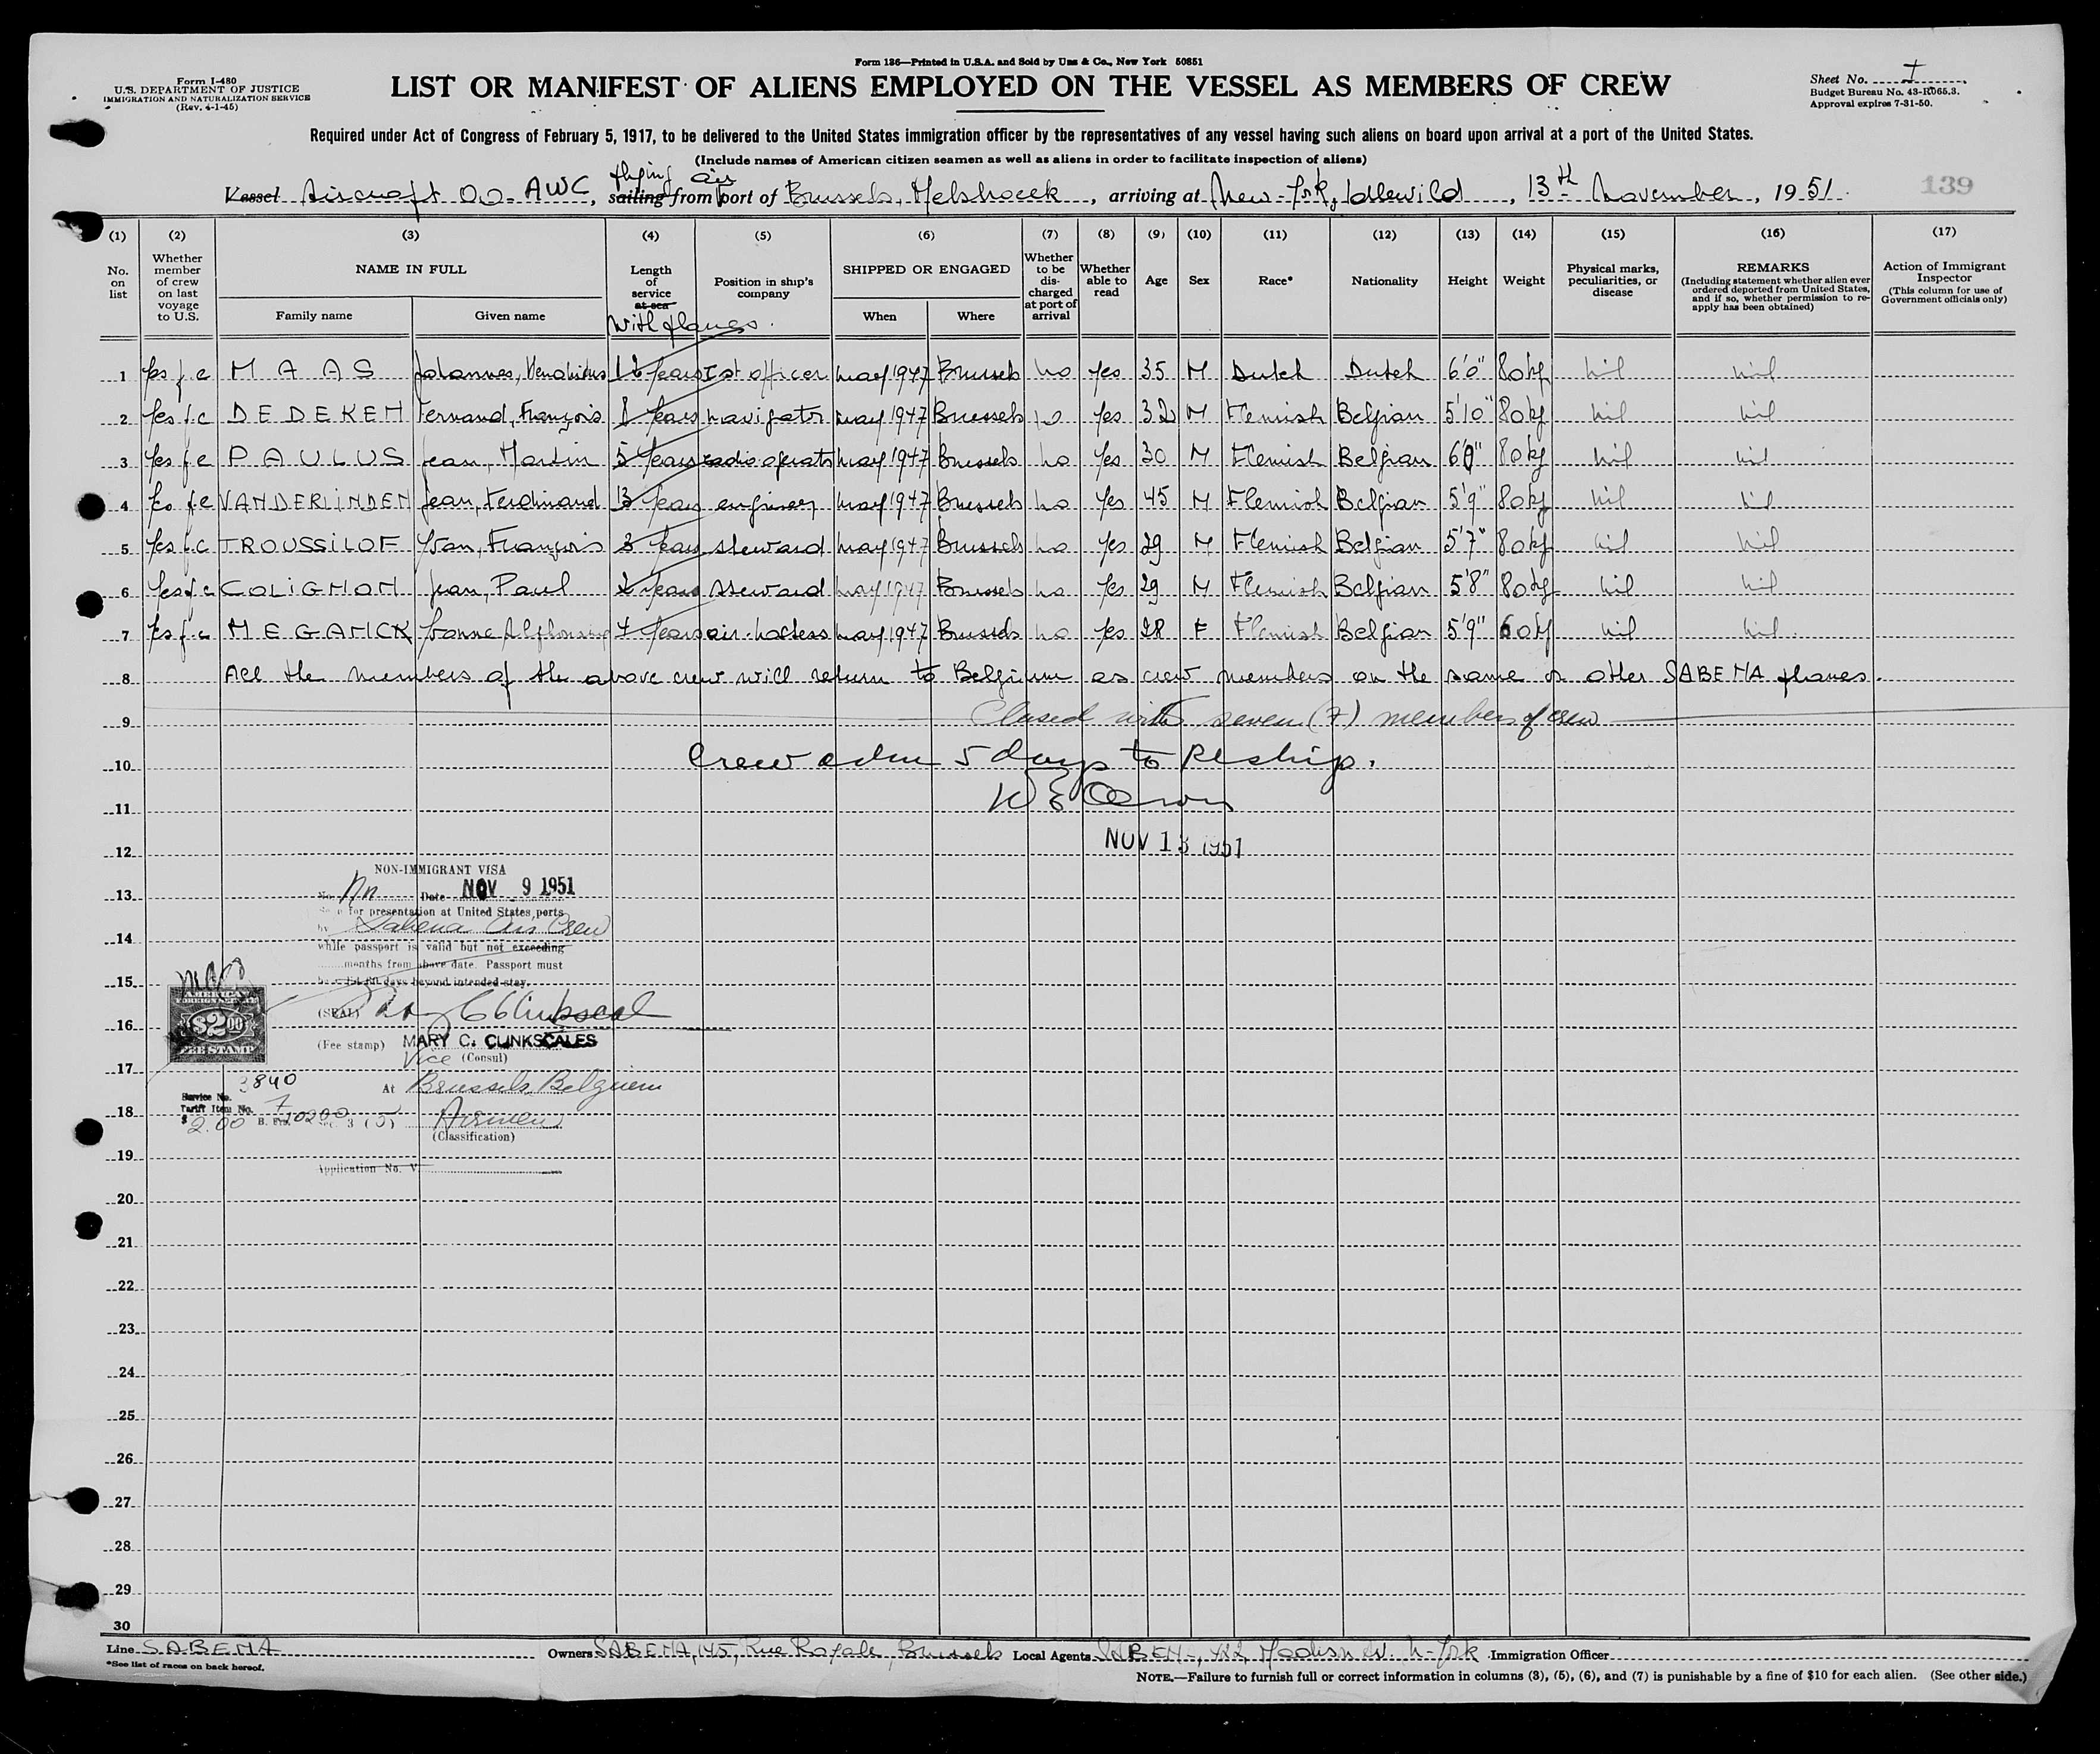 Form 136—Printed in U.S.A. and Sold by Unz & Co., New York 50851
Form I-480
U.S. DEPARTMENT OF JUSTICE
IMMIGRATION AND NATURALIZATION SERVICE
(Rev. 4-1-45)
LIST OR MANIFEST OF ALIENS EMPLOYED ON THE VESSEL AS MEMBERS OF CREW
Sheet No. I
Budget Bureau No. 43-R065.3.
Approval expires 7-31-50.
Required under Act of Congress of February 5, 1917, to be delivered to the United States immigration officer by the representatives of any vessel having such aliens on board upon arrival at a port of the United States.
(Include names of American citizen seamen as well as aliens in order to facilitate inspection of aliens)
flying air
Vessel Aircraft OO-AWC, sailing from port of Brussels, Melsbroeck, arriving at New-York, Idlewild, 13th November, 1951.
139
(1) (2) (3) (4) (5) (6) (7) (8) (9) (10) (11) (12) (13) (14) (15) (16) (17)
No. on list
Whether member of crew on last voyage to U.S.
NAME IN FULL
Family name
Given name
Length of service at sea
With planes.
Position in ship's company
SHIPPED OR ENGAGED
When
Where
Whether to be discharged at port of arrival
Whether able to read
Age
Sex
Race*
Nationality
Height
Weight
Physical marks, peculiarities, or disease
REMARKS
(Including statement whether alien ever ordered deported from United States, and if so, whether permission to reapply has been obtained)
Action of Immigrant Inspector
(This column for use of Government officials only)
1 Yes MAAS Johannes, years Ist officer May 1947 Brussels no Yes 35 M Dutch Dutch 6'0" 80kg nil nil
2 Yes DEDEKEN Fernand, François years navigator May 1947 Brussels no Yes 32 M Flemish Belgian 5'10" 80kg nil nil
3 Yes PAULUS Jean, Martin 5 years radio operator May 1947 Brussels no Yes 30 M Flemish Belgian 6'0" 80kg nil nil
4 Yes VANDERLINDEN Jean, Ferdinand 13 years engineer May 1947 Brussels no Yes 45 M Flemish Belgian 5'9" 80kg nil nil
5 Yes TROUSSILOF Yvan, François 3 years steward May 1947 Brussels no Yes 29 M Flemish Belgian 5'7" 80kg nil nil
6 Yes COLIGNON Jean, Paul 2 years steward May 1947 Brussels no Yes 29 M Flemish Belgian 5'8" 80kg nil nil
7 Yes MEGANCK years air-hostess May 1947 Brussels no Yes 28 F Flemish Belgian 5'9" 60kg nil nil
8 All the members of the above crew will return to Belgium as crew members on the same or other SABENA planes.
9 Closed with seven (7) members of crew
10 Crew adm 5 days to Reship.
11
12 NOV 13 1951
NON-IMMIGRANT VISA
13 No. Date NOV 9 1951
for presentation at United States ports
14 by Sabena Air Crew
while passport is valid but not exceeding
months from above date. Passport must
15 days beyond intended stay.
AMERICAN FOREIGN SERVICE
$2.00
FEE STAMP
(SEAL)
16
(Fee stamp) MARY C. CLINKSCALES
Vice (Consul)
17 3840 At Brussels, Belgium
Service No.
Tariff Item No. 7
18 $ 2.00 Airmen
(Classification)
19 Application No. V
20
21
22
23
24
25
26
27
28
29
30
Line SABENA Owners SABENA, 145, Rue Royale, Brussels Local Agents N-York Immigration Officer
*See list of races on back hereof.
NOTE.—Failure to furnish full or correct information in columns (3), (5), (6), and (7) is punishable by a fine of $10 for each alien. (See other side.)